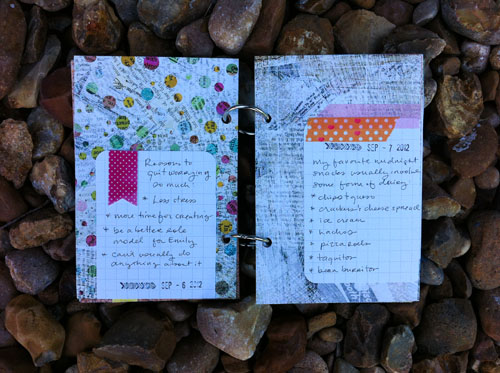 Reasons to
quit worrying
so much
* Less stress
* more time for creating
* be a better role
model for Emily
* can't usually do
anything about it
SEP - 6 2012
SEP - 7 2012
My favorite midnight
snacks usually involve
some form of dairy
* chips + queso
* crackers + cheese spread
* ice cream
* nachos
* pizza rolls
* taquitos
* bean burritos